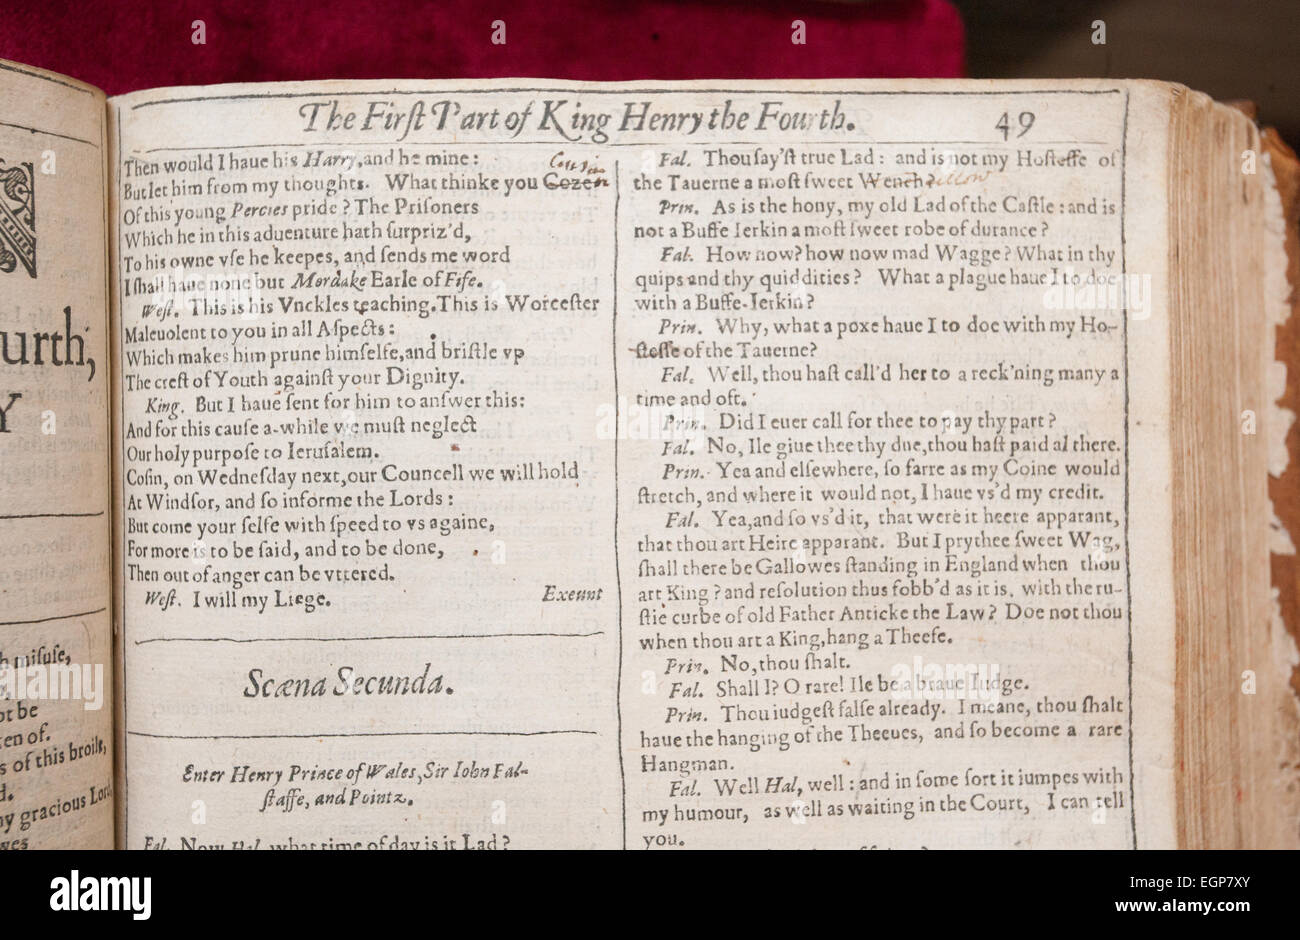 The First Part of King Henry the Fourth.
49
Then would I haue his Harry, and he mine:
But let him from my thoughts. What thinke you Cozen
Cousin
Of this young Percies pride? The Prisoners
Which he in this aduenture hath surpriz'd,
To his owne vse he keepes, and sends me word
I shall haue none but Mordake Earle of Fife.
West. This is his Vnckles teaching. This is Worcester
Maleuolent to you in all Aspects:
Which makes him prune himselfe, and bristle vp
The crest of Youth against your Dignity.
King. But I haue sent for him to answer this:
And for this cause a-while we must neglect
Our holy purpose to Ierusalem.
Cosin, on Wednesday next, our Councell we will hold
At Windsor, and so informe the Lords:
But come your selfe with speed to vs againe,
For more is to be said, and to be done,
Then out of anger can be vttered.
West. I will my Liege. Exeunt
Scæna Secunda.
Enter Henry Prince of Wales, Sir Iohn Fal-
staffe, and Pointz.
Fal. Now Hal, what time of day is it Lad?
Fal. Thou say'st true Lad: and is not my Hostesse of
the Tauerne a most sweet Wench?
Prin. As is the hony, my old Lad of the Castle: and is
not a Buffe Ierkin a most sweet robe of durance?
Fal. How now? how now mad Wagge? What in thy
quips and thy quiddities? What a plague haue I to doe
with a Buffe-Ierkin?
Prin. Why, what a poxe haue I to doe with my Ho-
stesse of the Tauerne?
Fal. Well, thou hast call'd her to a reck'ning many a
time and oft.
Prin. Did I euer call for thee to pay thy part?
Fal. No, Ile giue thee thy due, thou hast paid al there.
Prin. Yea and elsewhere, so farre as my Coine would
stretch, and where it would not, I haue vs'd my credit.
Fal. Yea, and so vs'd it, that were it heere apparant,
that thou art Heire apparant. But I prythee sweet Wag,
shall there be Gallowes standing in England when thou
art King? and resolution thus fobb'd as it is, with the ru-
stie curbe of old Father Anticke the Law? Doe not thou
when thou art a King, hang a Theefe.
Prin. No, thou shalt.
Fal. Shall I? O rare! Ile be a braue Iudge.
Prin. Thou iudgest false already. I meane, thou shalt
haue the hanging of the Theeues, and so become a rare
Hangman.
Fal. Well Hal, well: and in some sort it iumpes with
my humour, as well as waiting in the Court, I can tell
you.
urth,
Y
h misuse,
ot be
ken of.
s of this broile,
d.
my gracious Lord
alamy
alamy
Image ID: EGP7XY
www.alamy.com